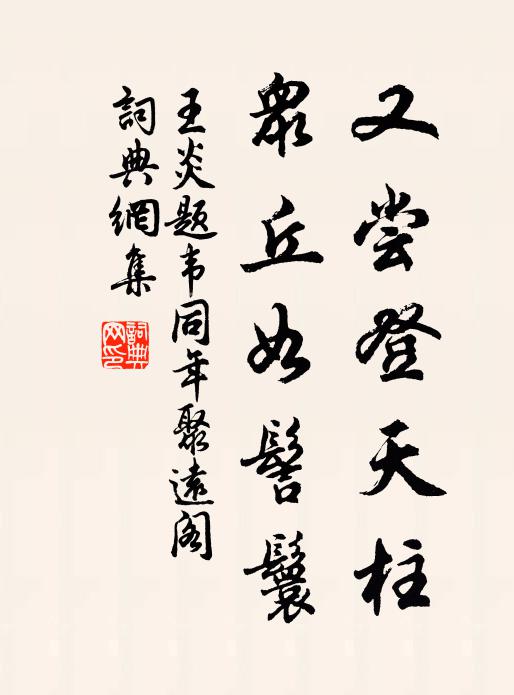 又尝登天柱
众丘如髻鬟
王炎题韦同年聚遠阁
詞典網集
詞典网印